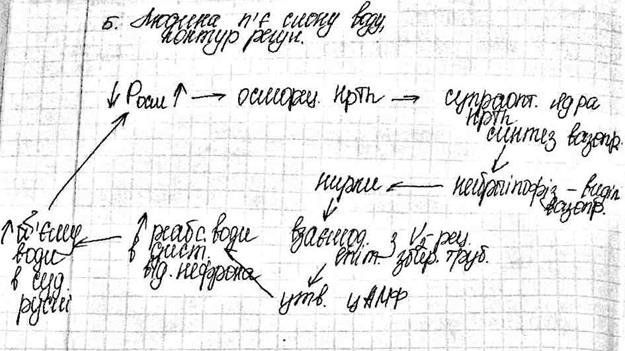 5. Людина п'є слону воду,
контур регул.
↓ Росм ↑ → осморец. hpth → супраопт. ядра
hpth
синтез вазопр.
нирки ← нейрогіпофіз – виділ.
вазопр.
↑ об'єму
води
в суд.
руслі
↑ реабс. води
в дист.
від. нефрона
взаємод. з V₂-рец.
епіт. збир. труб.
утв. цАМФ